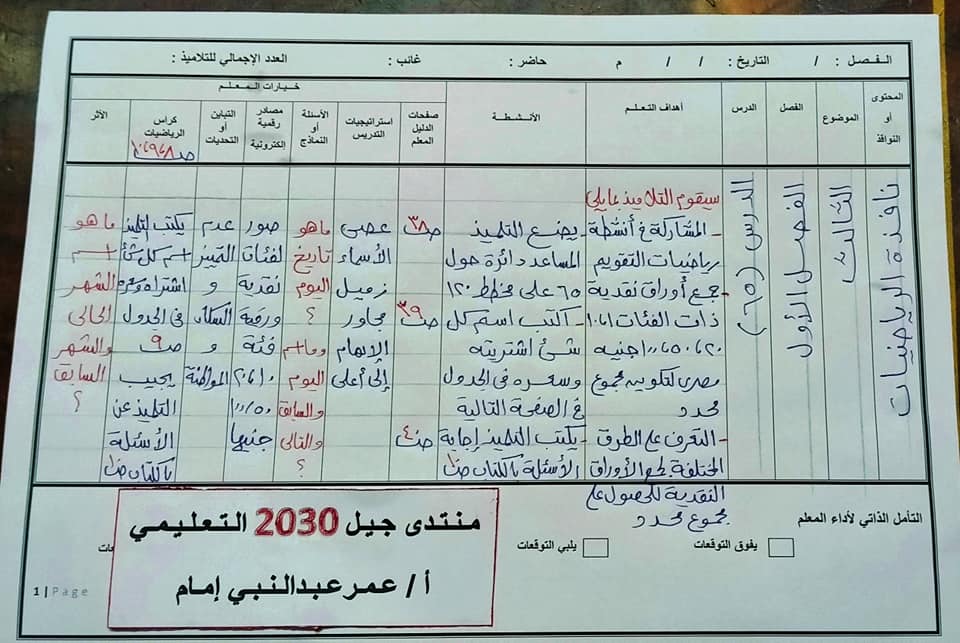 الفصل : / التاريخ : / / م حاضر : غائب : العدد الإجمالي للتلاميذ :
المحتوى أو النوافذ
الموضوع
الفصل
الدرس
أهداف التعلم
الأنشطة
خيارات المعلم
صفحات الدليل المعلم
استراتيجيات التدريس
الأسئلة أو النماذج
مصادر رقمية إلكترونية
التباين أو التحديات
كراس الرياضيات
ص ٨، ٩، ١٠
الأثر
نافذة الرياضيات
الثالث
الفصل الأول
الدرس (٦٥)
سيقوم التلاميذ بما يلي
- المشاركة في أنشطة
رياضيات التقويم
- جمع أوراق نقدية
ذات الفئات ١، ١٠
٢٠، ٥٠، ١٠٠ جنيه
مصري لتكوين مجموع
محدد
- التعرف على الطرق
المختلفة لجمع الأوراق
النقدية للحصول على
مجموع محدد
- يضع التلميذ
المساعد دائرة حول
٦٥ على مخطط ١٢٠
- اكتب اسم كل
شئ اشتريته
وسعره في الجدول
في الصفحة التالية
- يكتب التلميذ إجابة
الأسئلة بالكتاب ص ١٠
ص ٣٨
ص ٣٩
ص ٤٠
عصى
الأسماء
زميل
مجاور
الإبهام
إلى أعلى
ما هو
تاريخ
اليوم
؟
وما اسم
اليوم
والسابق
والتالى
؟
صور
لفئات
نقدية
ورقية
فئة
١٠، ٢٠
٥٠، ١٠٠
جنيها
عدم
التميز
و
السكان
و
المواطنة
يكتب التلميذ
اسم كل شئ
اشتراه وسعره
في الجدول
ص ٩
يجيب
التلميذ عن
الأسئلة
بالكتاب ص ١٠
ما هو
اسم
الشهر
الحالى
والشهر
السابق
؟
التأمل الذاتي لأداء المعلم
يفوق التوقعات
يلبي التوقعات
منتدى جيل 2030 التعليمي
أ / عمر عبدالنبي إمام
1 | Page